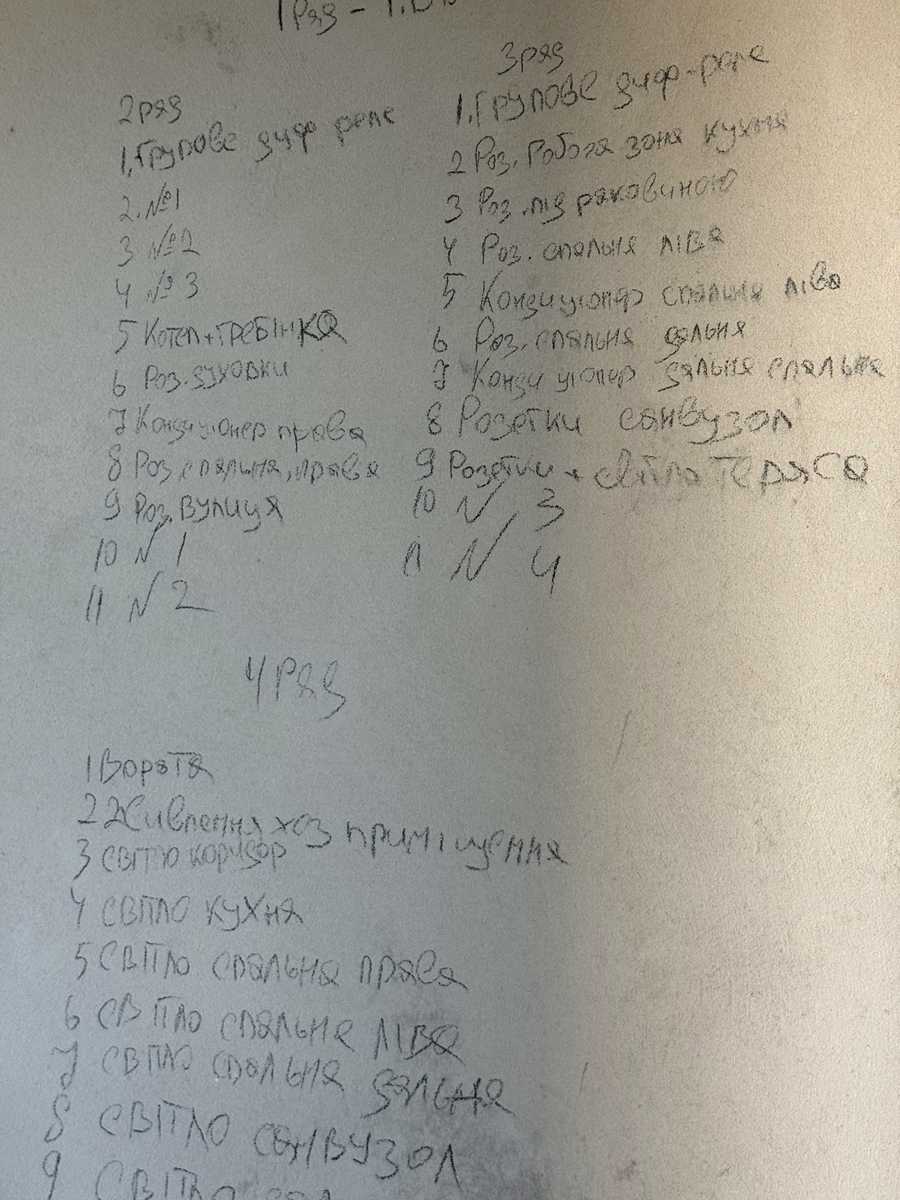 1 Ряд -
2 ряд
1. Групове диф реле
2. №1
3 №2
4 №3
5 Котел+гребінка
6 Роз. духовки
7 Кондиціонер права
8 Роз. спальня, права
9 Роз. Вулиця
10 N 1
11 N 2
3 ряд
1. Групове диф-реле
2 Роз. Робоча зона кухня
3 Роз. під раковиною
4 Роз. спальня ліва
5 Кондиціонер спальня ліва
6 Роз. спальня дальня
7 Кондиціонер дальня спальня
8 Розетки санвузол
9 Розетки + світло Тераса
10 N 3
11 N 4
4 Ряд
1 Ворота
2 Живлення хоз приміщення
3 світло коридор
4 світло кухня
5 світло спальня права
6 світло спальня ліва
7 світло спальня дальня
8 світло санвузол
9 світло